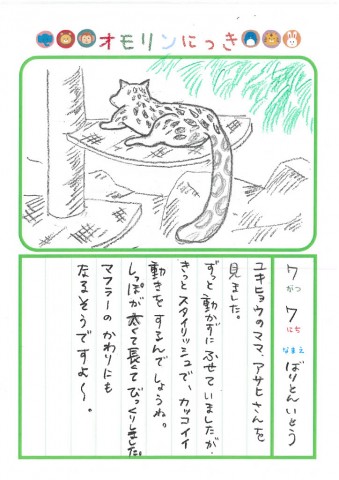 オモリンにっき
7がつ7にち
なまえ ばりとんいとう
ユキヒョウのママ、アサヒさんを
見ました。
ずっと動かずにふせていましたが、
きっとスタイリッシュで、カッコイイ
動きをするんでしょうね。
しっぽが太くて長くてびっくりしました。
マフラーのかわりにも
なるそうですよ〜。